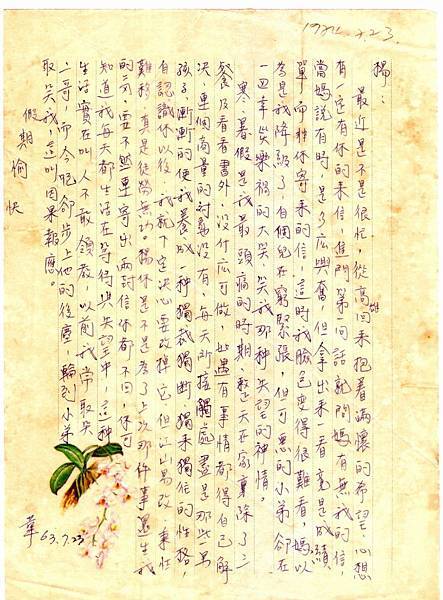 1974.7.23.
楊：
最近是不是很忙，從高雄回來抱着滿懷的希望，心想
有一定有你的來信，進門第一句話就問媽有無我的信，
當媽說有時，是多麼興奮，但拿出來一看竟是成績
單而非你寄來的信，這時我臉色變得很難看，媽以
為是我降級了，自個兒在窮緊張，但可惡的小弟卻在
一旁幸災樂禍的大笑，笑我那種失望的神情。
寒暑假是我最頭痛的時期，整天在家裏除了三
餐及看看書外，沒什麼可做，如遇有事情都得自己解
決，連個商量的對象沒有，每天所接觸處盡是那些男
孩子，漸漸的使我養成一種獨裁獨斷獨來獨往的性格，
自認識你以後，我就下定決心要改掉它，但江山易改，本性
難移，真是徒勞無功。楊，你是不是為了上次那件事還生我
的氣，要不然連寄出兩封信你都不回，你可
知道我每天都生活在等待與失望中，這種
生活實在叫人不敢領教，以前我常取笑
二哥，而今呢卻步上他的後塵，輪到小弟
取笑我，這叫因果報應。
假期愉快
華
63.7.23